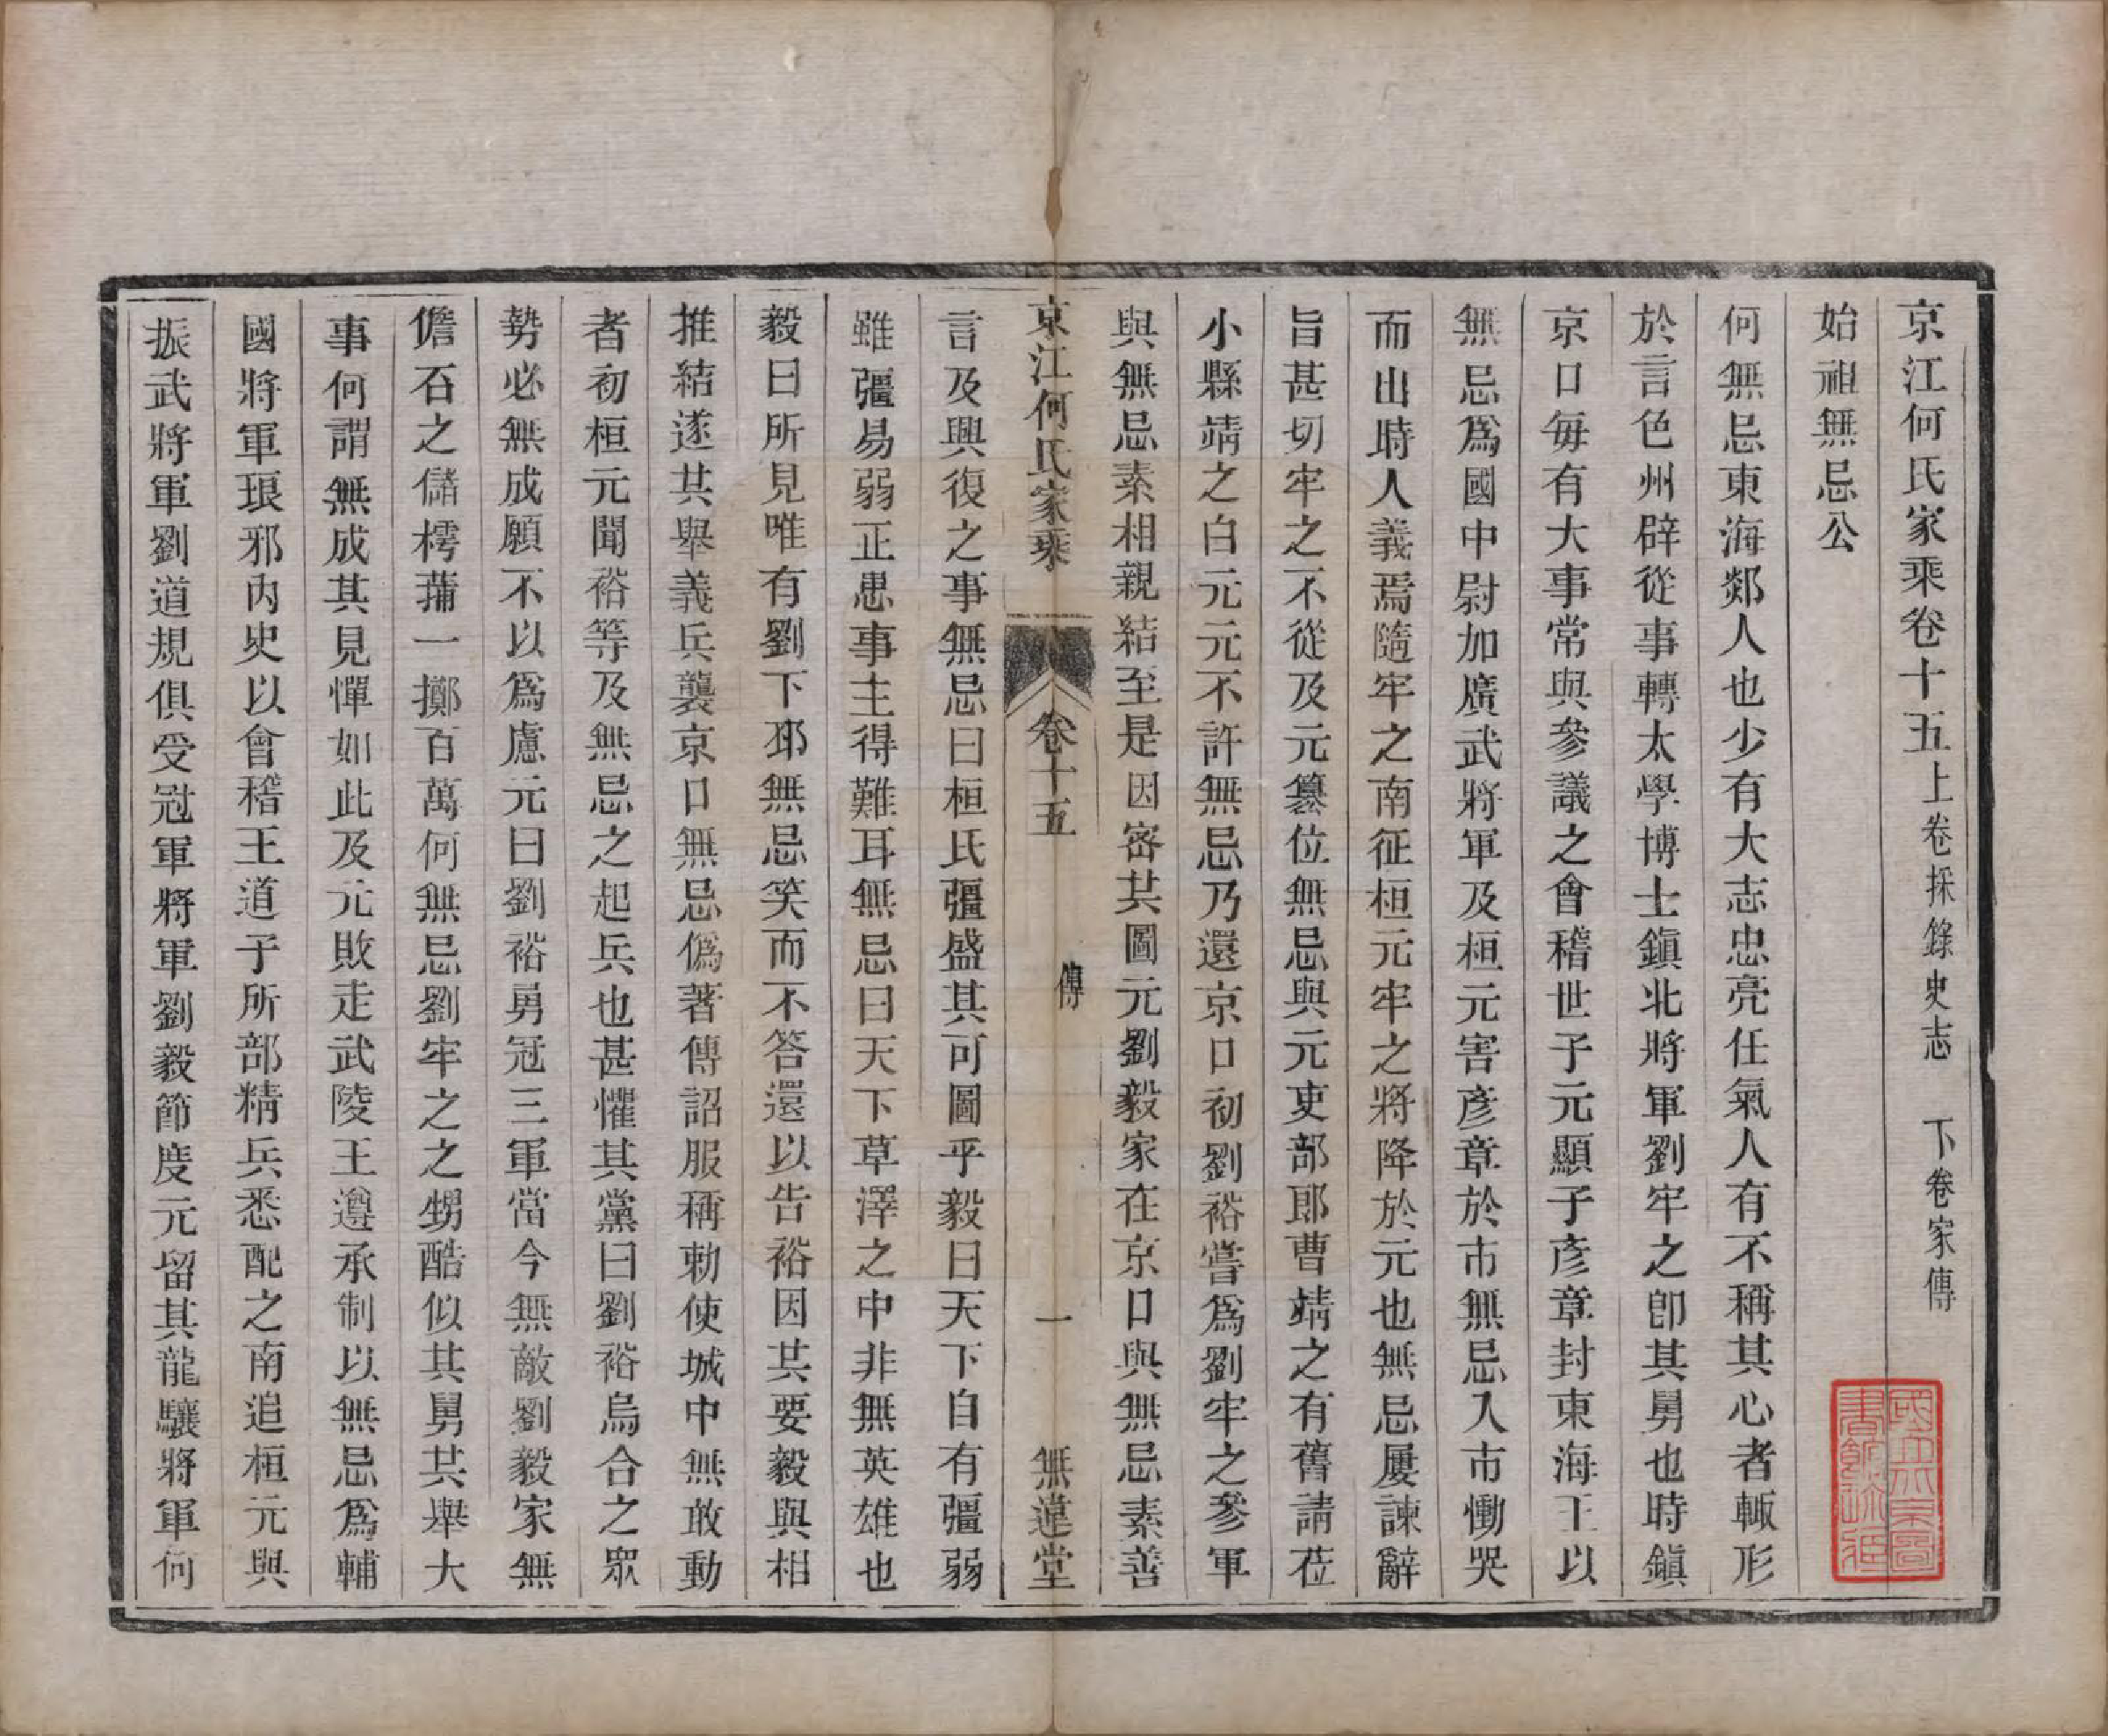 京江何氏家乘卷十五上卷採錄史志　下卷家傳
始祖無忌公
何無忌東海郯人也少有大志忠亮任氣人有不稱其心者輙形
於言色州辟從事轉太學博士鎮北將軍劉牢之卽其舅也時鎮
京口每有大事常與參議之會稽世子元顯子彥章封東海王以
無忌爲國中尉加廣武將軍及桓元害彥章於市無忌入市慟哭
而出時人義焉隨牢之南征桓元牢之將降於元也無忌屢諫辭
旨甚切牢之不從及元簒位無忌與元吏部郎曹靖之有舊請莅
小縣靖之白元元不許無忌乃還京口初劉裕嘗爲劉牢之參軍
與無忌素相親結至是因密共圖元劉毅家在京口與無忌素善
京江何氏家乘　卷十五　傳　一　無違堂
言及興復之事無忌曰桓氏彊盛其可圖乎毅曰天下自有彊弱
雖彊易弱正患事主得難耳無忌曰天下草澤之中非無英雄也
毅曰所見唯有劉下邳無忌笑而不答還以告裕因共要毅與相
推結遂共舉義兵襲京口無忌僞著傳詔服稱勅使城中無敢動
者初桓元聞裕等及無忌之起兵也甚懼其黨曰劉裕烏合之眾
勢必無成願不以爲慮元曰劉裕勇冠三軍當今無敵劉毅家無
儋石之儲樗蒱一擲百萬何無忌劉牢之之甥酷似其舅共舉大
事何謂無成其見憚如此及元敗走武陵王遵承制以無忌爲輔
國將軍琅邪內史以會稽王道子所部精兵悉配之南追桓元與
振武將軍劉道規俱受冠軍將軍劉毅節度元留其龍驤將軍何